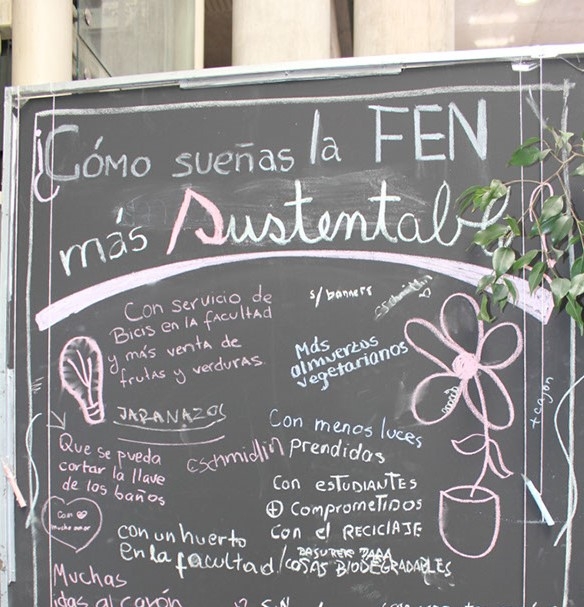 ¡Cómo sueñas la FEN
más Sustentable
Con servicio de
Bicis en la facultad
y más venta de
frutas y verduras.
s/banners
cschmidlin
Más
almuerzos
vegetarianos
JARANAZOS
+ cajón
Con menos luces
prendidas
cschmidlin
Que se pueda
cortar la llave
de los baños
Con
mucho amor
Con estudiantes
+ comprometidos
Con el reciclaje
con un huerto
en la facultad
/BASURER PARA
COSAS BIODEGRADABLES
Muchas
idas al cajón